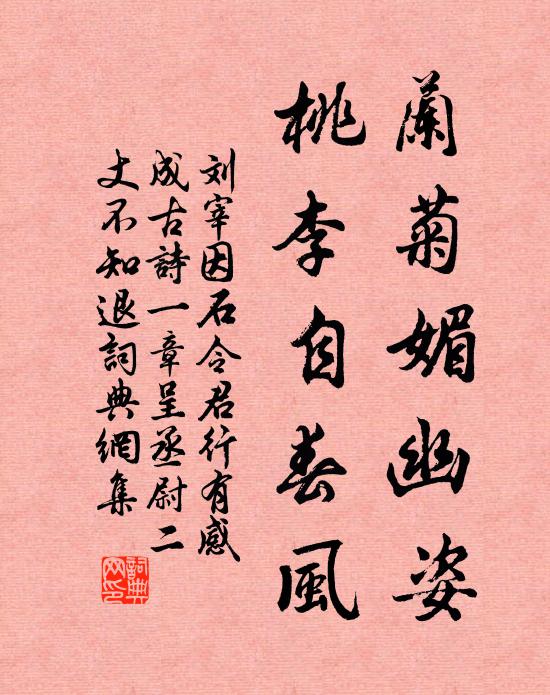 蘭菊媚幽姿
桃李自春風
刘宰因石令君行有感
成古詩一章呈丞尉二
丈不知退詞典網集
詞典网印